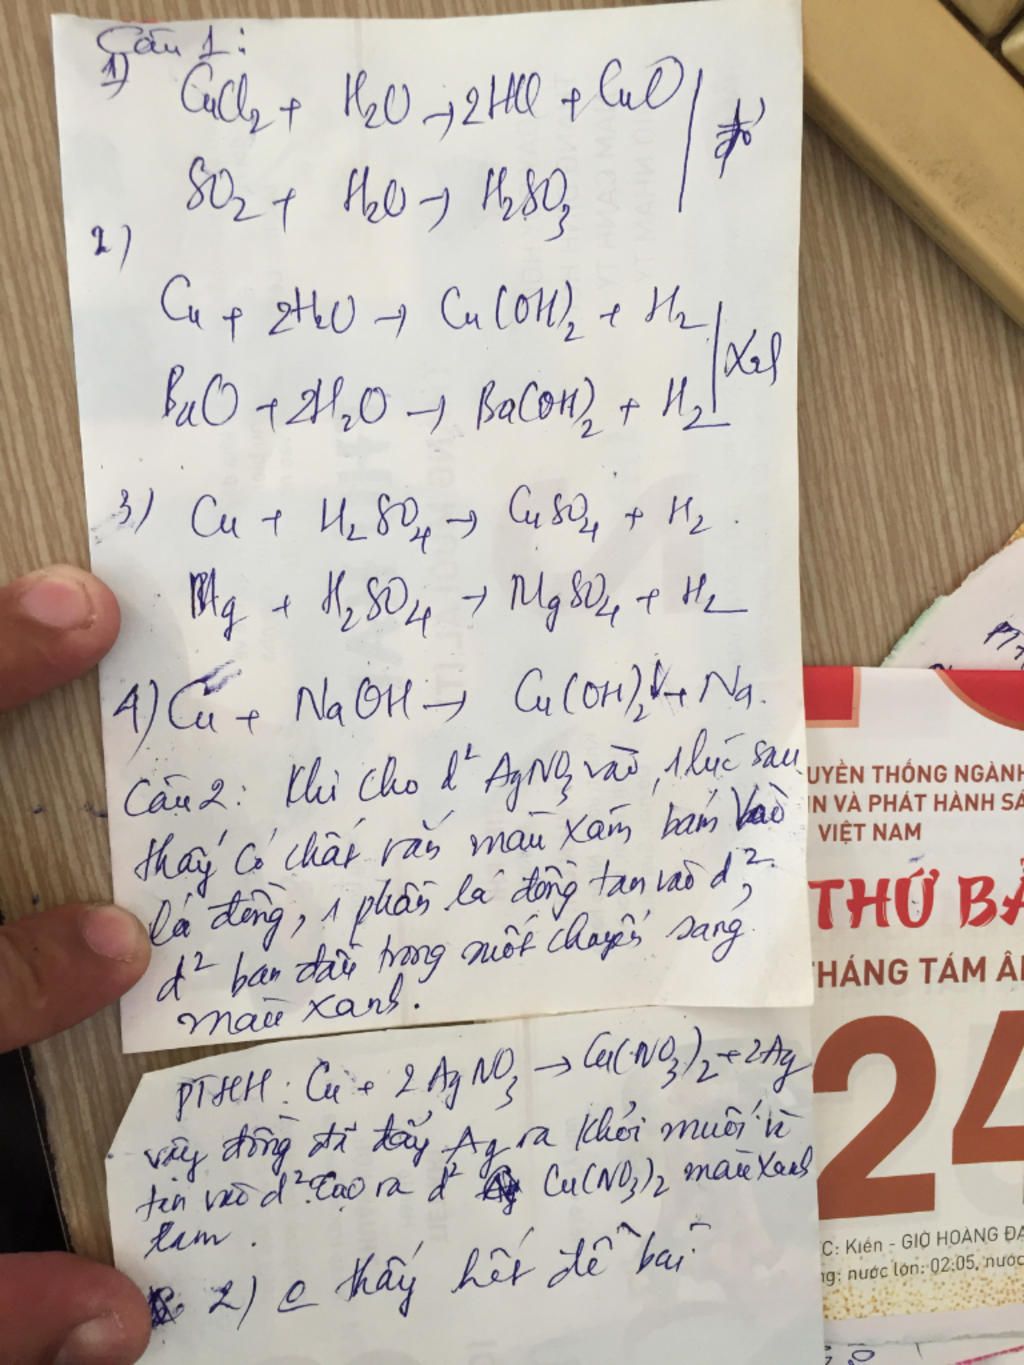 Câu 1:
1)
CuCl2 + H2O → 2HCl + CuO
đỏ
SO2 + H2O → H2SO3
2)
Cu + 2H2O → Cu(OH)2 + H2
BaO + 2H2O → Ba(OH)2 + H2
3) Cu + H2SO4 → CuSO4 + H2.
Mg + H2SO4 → MgSO4 + H2
4) Cu + NaOH → Cu(OH)2↓ + Na.
Câu 2: Khi cho d² AgNO3 vào, 1 lúc sau
thấy có chất rắn màu xám bám vào
lá đồng, 1 phần lá đồng tan vào d²,
d² ban đầu trong suốt chuyển sang
màu xanh.
PTHH: Cu + 2AgNO3 → Cu(NO3)2 + 2Ag
vậy đồng đã đẩy Ag ra khỏi muối và
tan vào d² tạo ra d² Cu(NO3)2 màu xanh
lam.
2) e thấy hết đề bài
UYỀN THỐNG NGÀNH
IN VÀ PHÁT HÀNH SÁ
VIỆT NAM
THỨ BẢ
THÁNG TÁM Â
24
C: Kiến - GIỜ HOÀNG ĐẠ
ng: nước lớn: 02:05, nước